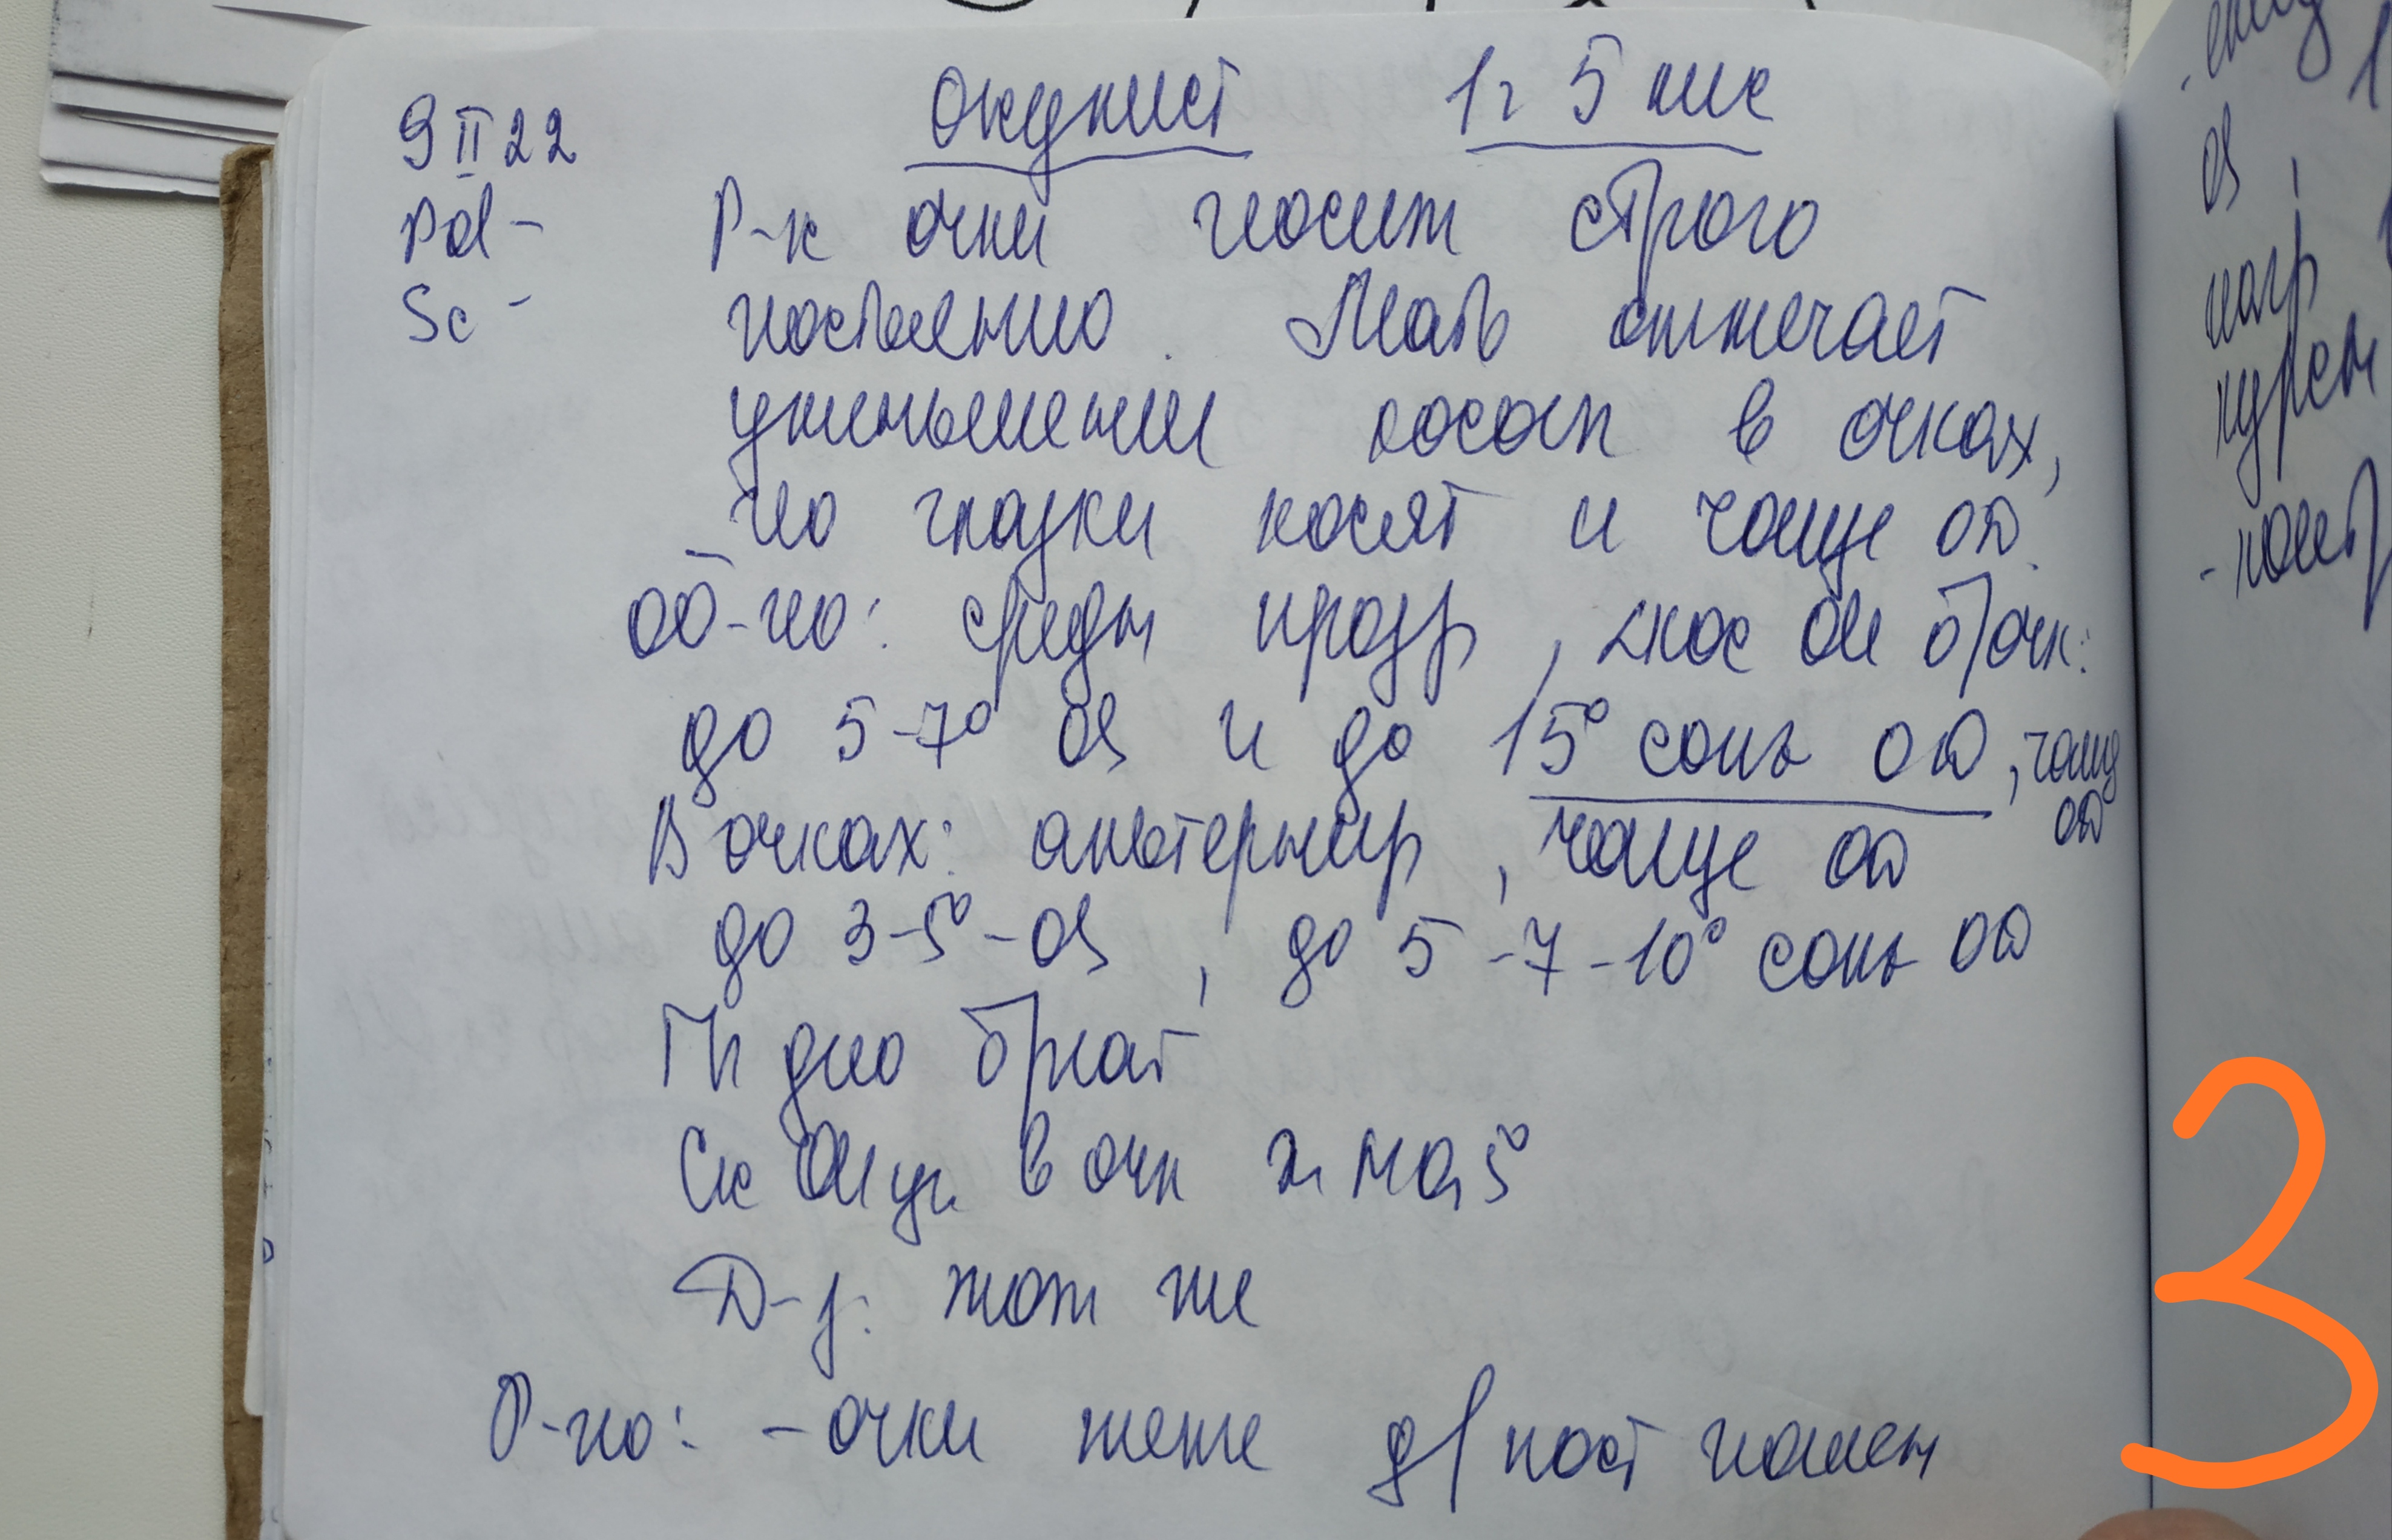 9 II 22 окулист 1г 5 мес
Pd - Р-к очки носит строго
Sc - постоянно. Мать отмечает
уменьшение косогл в очках,
но глазки косят и чаще OD.
Об-но: среды прозр, <кос ои б/очк:
до 5-7° OS и до 15° сонь OD, чаще
OD
В очках: альтернир, чаще OD
до 3-5° - OS, до 5-7-10° сонь OD
Гл дно б/пат
Ск в очк на 5°
D-з: тот же
Р-но: - очки теже д/пост ношен
енед
OS
нагр
курсы